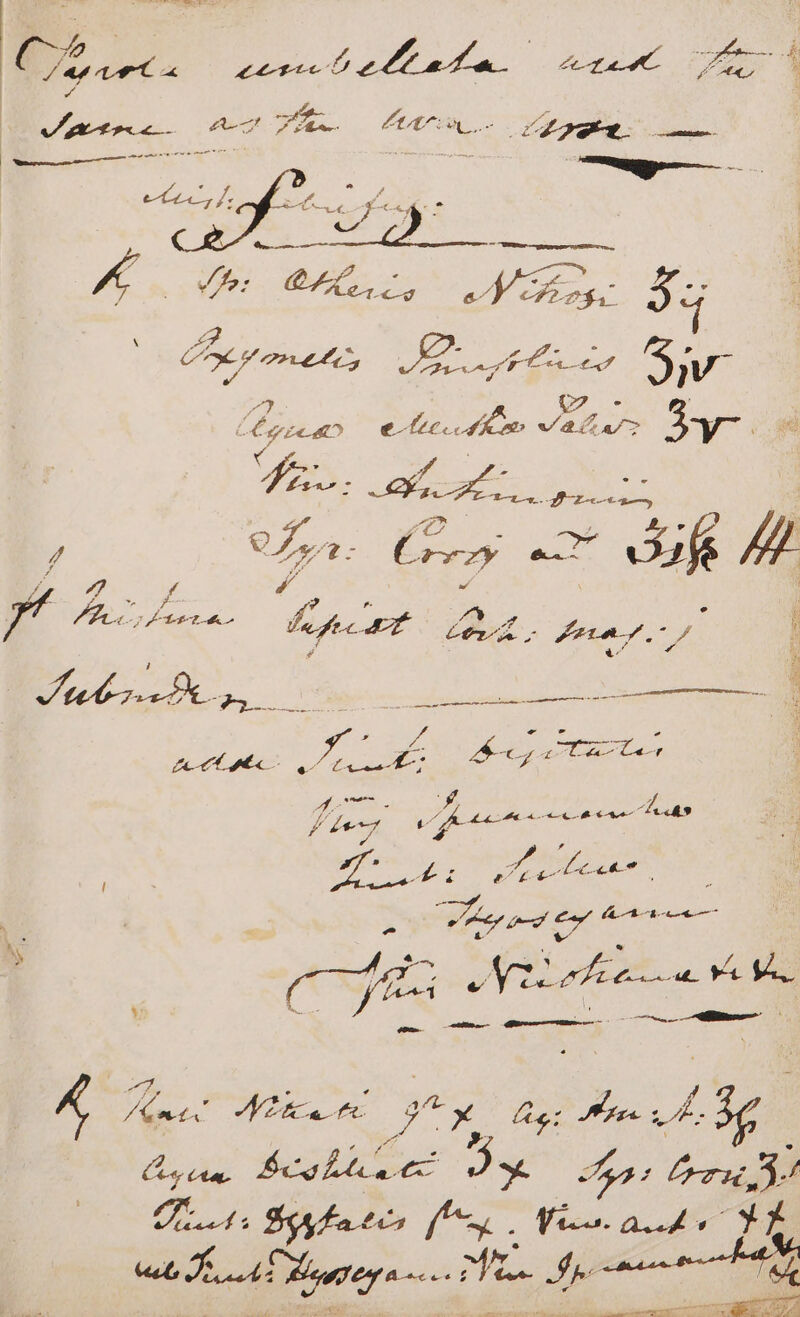 Pyrola umbellata used the
same as the uva ursi —
Mist: Febrifug:
℞ Sp: Etheris Nitrosi ʒij
Oxymelis Simplicis ʒiv
Aqua Mentha Saliv: ʒv
Vin: Antimonii
Syr: Croci aa ʒiß
ft Mistura Capiat Coch: mag: j
Subinde
adde Tinct: Digitalis
Vinj Ipecacuanha
Tinct: Scillae
" Hyoscyami
Vini Nicotiana &c &c
℞ Kali Nitrati gr x Aq: Am: A: ʒß
Aqua Distillati ʒx Syr: Croci ʒi
Tinct: Digitalis x . Vin. ant:
vel Tinct: Hyoscyami: Vin Ipecacuanha &c
&c